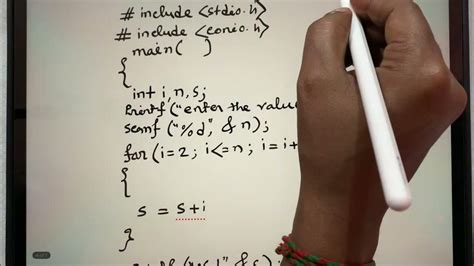 # include <stdio.h>
# include <conio.h>
main( )
{
int i, n, s;
Printf ("enter the value
scanf ("%d", & n);
for (i=2; i<=n; i=i+
{
s = s+i
}